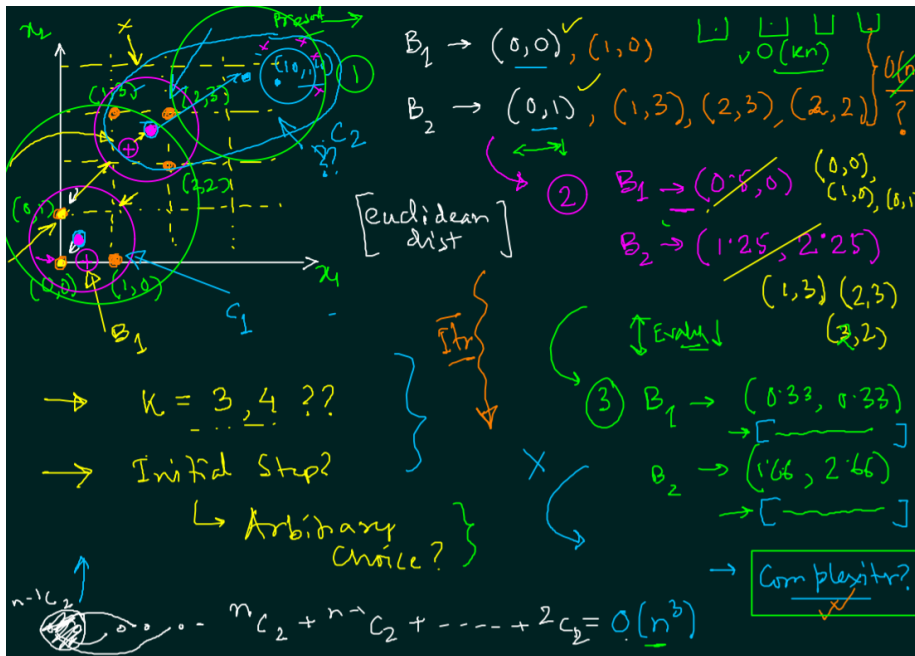 x₂
x
Present
(10,10)
1
(1,3)
(2,3)
C₂
??
(2,2)
(0,1)
(0,0)
(1,0)
x₁
B₁
C₁
B₁ → (0,0), (1,0)
B₂ → (0,1), (1,3), (2,3), (2,2)
O(kn)
O(n)
?
[euclidean
dist]
2
B₁ → (0.5,0)
(0,0),
(1,0), (0,1)
B₂ → (1.25, 2.25)
(1,3) (2,3)
(2,2)
Itr
3 B₁ → (0.33, 0.33)
→ [ ]
B₂ → (1.66, 2.66)
→ [ ]
→ K = 3, 4 ??
→ Initial Step?
↳ Arbitrary
Choice?
X
→ Complexiter?
n-1C₂
ⁿC₂ + ⁿ⁻¹C₂ + ----- + ²C₂ = O(n³)